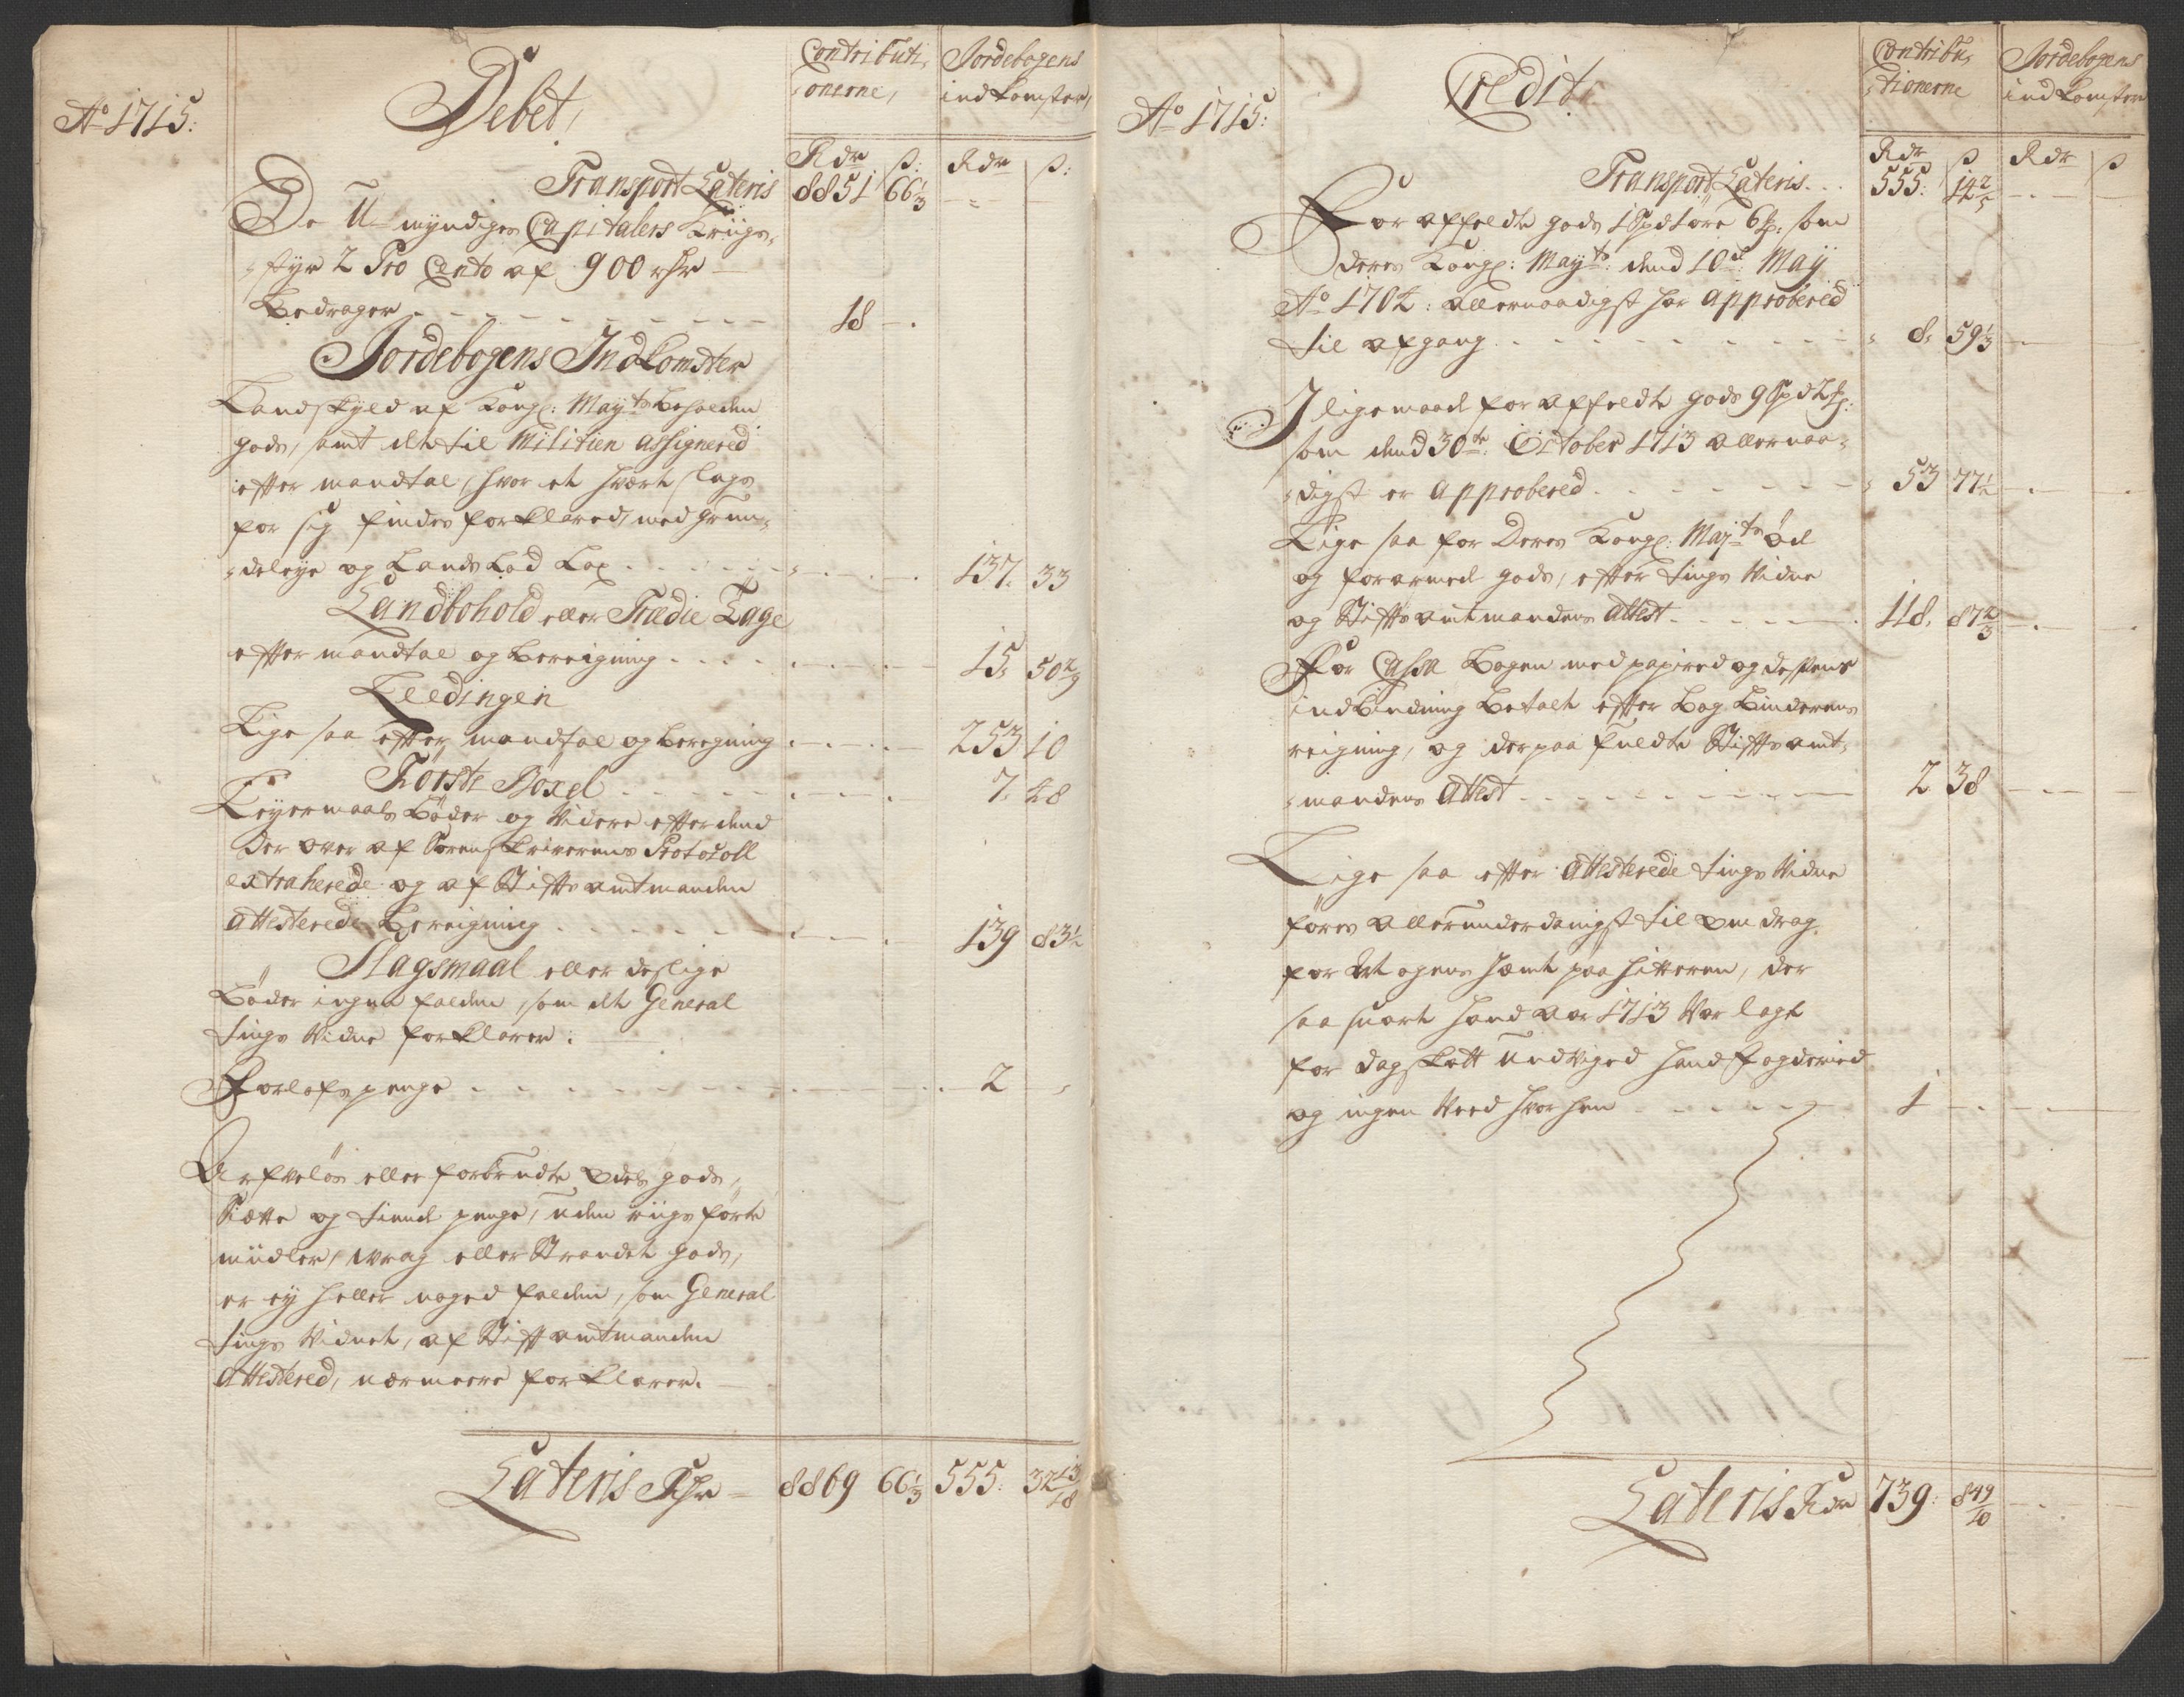 Ao 1715:
Debet,
Contributi,
onerne,
Jordebogens
indkomster,
Rdr ß: Rdr ß:
Transport Lateris 8851 66 1/3
De U-myndiges Capitalers Kriigs-
styr 2 Pro Cento af 900 rdr
bedrager 18
Jordebogens Indkomster
Landskyld af Kongl: Mayts beholden
gods, samt det til Militien assignered
efter mandtal, hvor et hvert slags
for sig findes forklared, med grun-
deleye og Landslod Lax 137. 33
Landbohold eller Trædie Tage
efter mandtal og bereigning 15. 50 2/9
Leedingen
Lige saa efter mandtal og beregning 253 10
Förste Böxel 7. 48
Leyermaals Böder og videre efter dend
der over af Sorenskriverens Protocoll
extraherede og af Stiftsamtmanden
attesterede bereigning 139 83 1/2
Slagsmaal eller deslige
Böder ingen falden, som det General
tings Vidne forklarer:
Forlofs penge 2
Arfvelös eller forbrudte odels gods,
Siette og tiende penge, uden riigs förte
midler, wrag eller Strandet gods,
er ey heller noged falden, som General
tings Vidnet, af Stiftamtmanden
attestered, nærmeere forklarer.
Lateris Rdr 8869 66 1/3 555: 32 13/18
Ao 1715:
Credit
Contribu,
tionerne
Jordebogens
indkomster
Rdr ß Rdr ß
Transport Lateris 555: 14 2/5
For affeldte gods 1 Spd 1 öre 6 p: som
Deres Kongl: Mayts dend 10de May
Ao 1704: allernaadigst har approbered
til afgang 8. 59 1/3
I ligemaade for affeldte gods 9 Spd 2
som dend 30te October 1713 allernaa-
digst er approbered 53 77 1/2
Lige saa for Deres Kongl: Mayts öde
og forarmede gods, efter tings Vidne
og Stiftsamtmandens attest 118. 87 2/3
For Cassa Bogen med papired og dessens
indbinding betalt efter Bog Binderens
reigning, og derpaa fuldte Stiftsamt-
mandens attest 2 38
Lige saa efter attesterede tings Vidne
föres allerunderdanigst til om drag
for et ogens Jemt paa Hitteren, der
saa snart hand aar 1713 var lagt
for dagskatt undviged hand fogderied
og ingen veed hvor hen 1
Lateris Rdr 739: 84 9/10